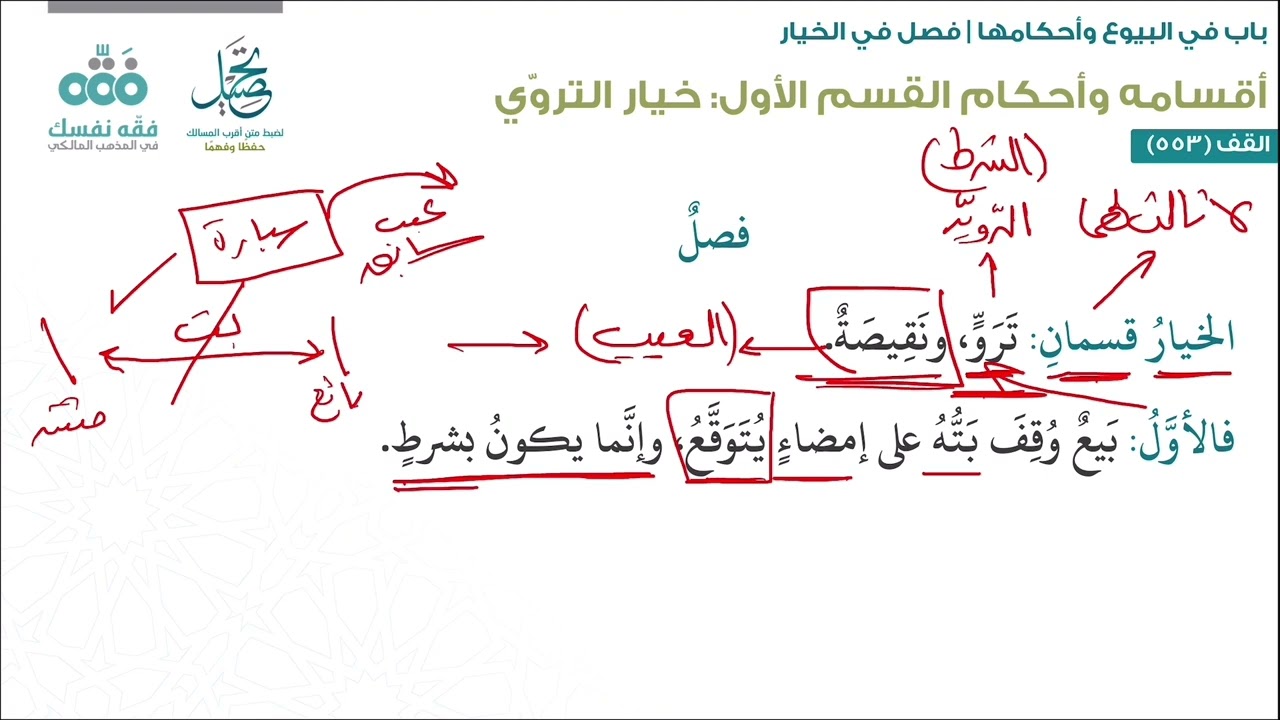 باب في البيوع وأحكامها | فصل في الخيار
أقسامه وأحكام القسم الأول: خيار التروّي
القف (٥٥٣)
تحصيل
لضبط متن أقرب المسالك
حفظا وفهمًا
فقّه
فقّه نفسك
في المذهب المالكي
(الشرط)
لا ثالث لهما
سيارة
عيب
سابق
فصلٌ
بت
(العيب)
الخيارُ قسمانِ: تَرَوٍّ، ونَقِيصَةٌ.
بائع
فالأوَّلُ: بَيعٌ وُقِفَ بَتُّهُ على إمضاءٍ يُتَوَقَّعُ، وإنَّما يكونُ بشرطٍ.